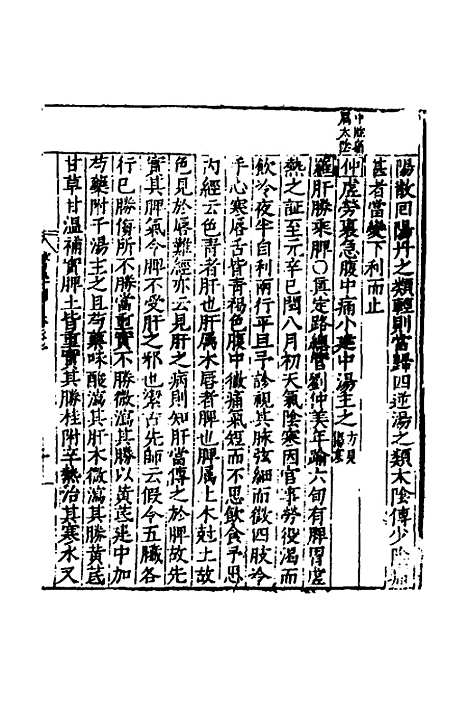 中脘痛
屬太陰
陽散回陽丹之類輕則當歸四逆湯之類太陰傳少陰痛
甚者當變下利而止
仲虛勞裏急腹中痛小建中湯主之方見傷寒
羅肝勝乘脾〇真定路總管劉仲美年踰六旬有脾胃虛
熱之証至元辛巳閏八月初天氣陰寒因官事勞役渴而
飲冷夜半自利兩行平旦予診視其脉弦細而微四肢冷
手心寒唇舌皆青褐色腹中微痛氣短而不思飲食予思
內經云色青者肝也肝属木唇者脾也脾属土木尅土故
色見於唇難經亦云見肝之病則知肝當傳之於脾故先
實其脾氣令脾不受肝之邪也潔古先師云假令五臟各
行已勝侮所不勝當重實不勝微瀉其勝以黃芪建中加
芍藥附子湯主之且芍藥味酸瀉其肝木微瀉其勝黃芪
甘草甘温補實脾土皆重實其勝桂附辛熱治其寒水又